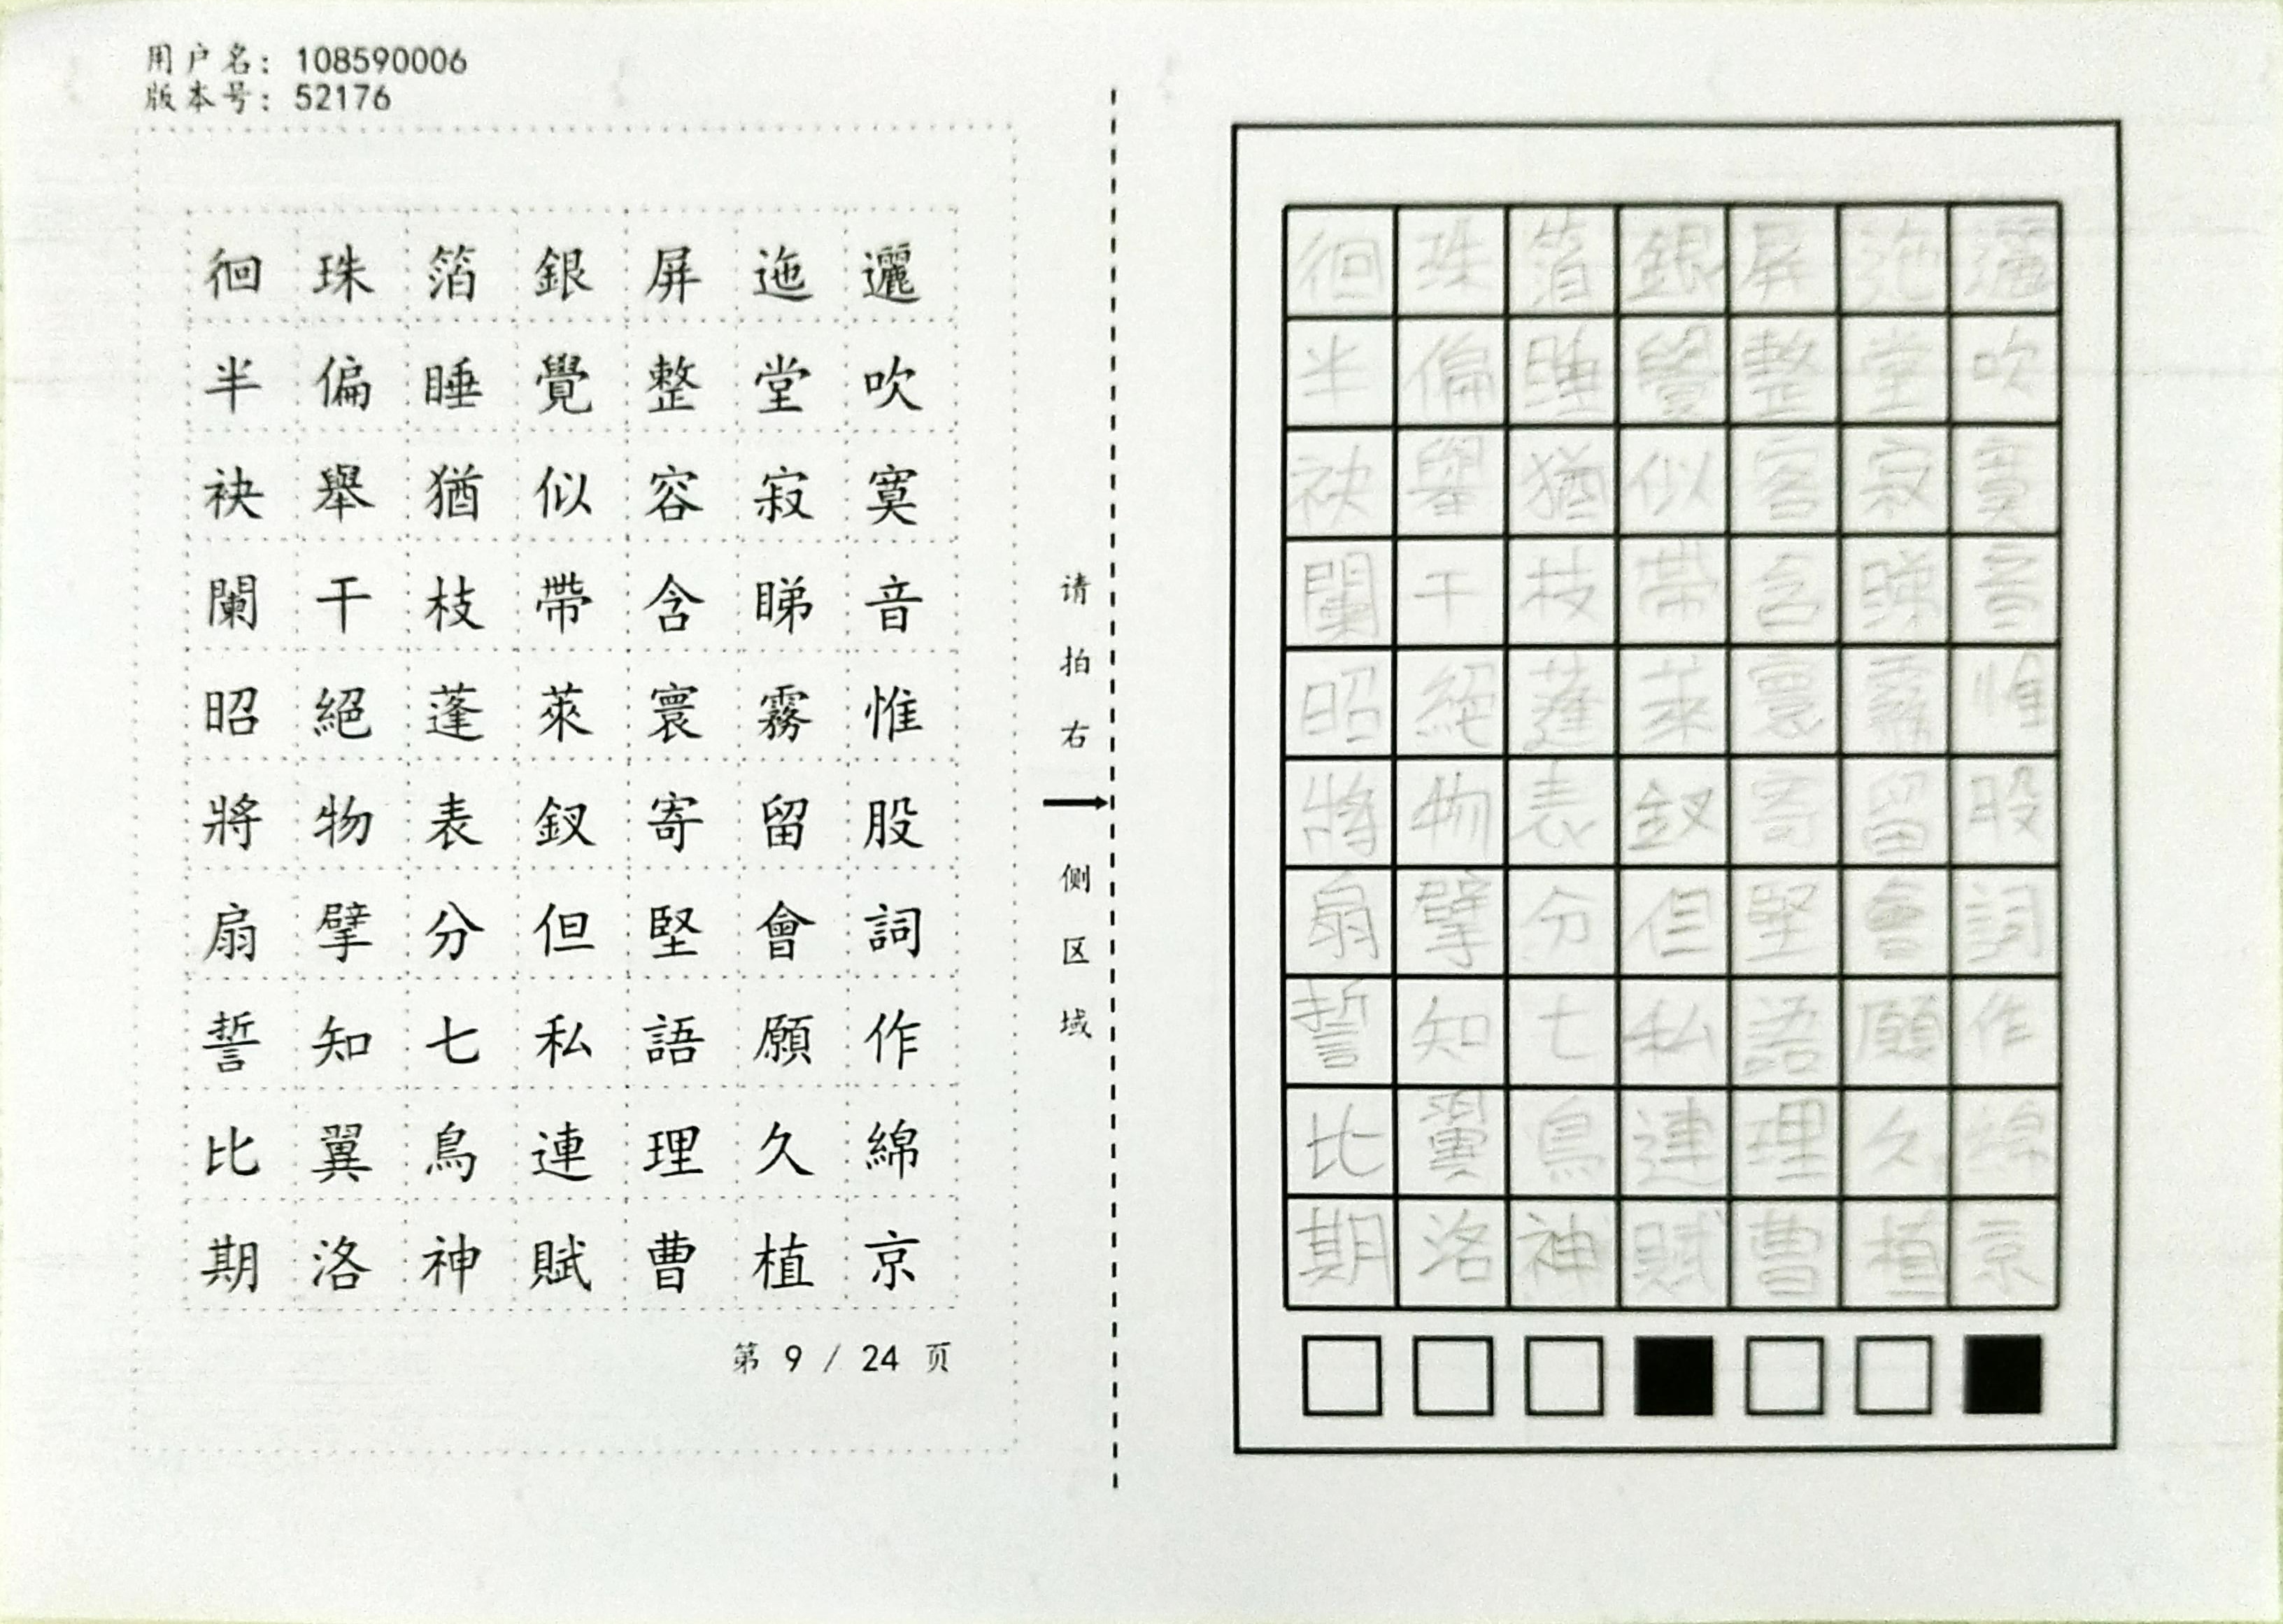 用户名: 108590006
版本号: 52176
徊珠箔銀屏迤邐
半偏睡覺整堂吹
袂舉猶似容寂寞
闌干枝帶含睇音
昭絕蓬萊寰霧惟
將物表釵寄留股
扇擘分但堅會詞
誓知七私語願作
比翼鳥連理久綿
期洛神賦曹植京
第 9 / 24 页
请拍右
侧区域
徊珠箔銀屏迤邐
半偏睡覺整堂吹
袂舉猶似容寂寞
闌干枝帶含睇音
昭絕蓬萊寰霧惟
將物表釵寄留股
扇擘分但堅會詞
誓知七私語願作
比翼鳥連理久綿
期洛神賦曹植京